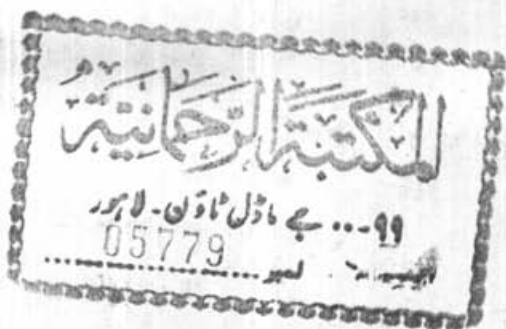 المكتبة الرحمانية
۹۹۔۔۔ جے ماڈل ٹاؤن۔ لاہور
05779
نمبر